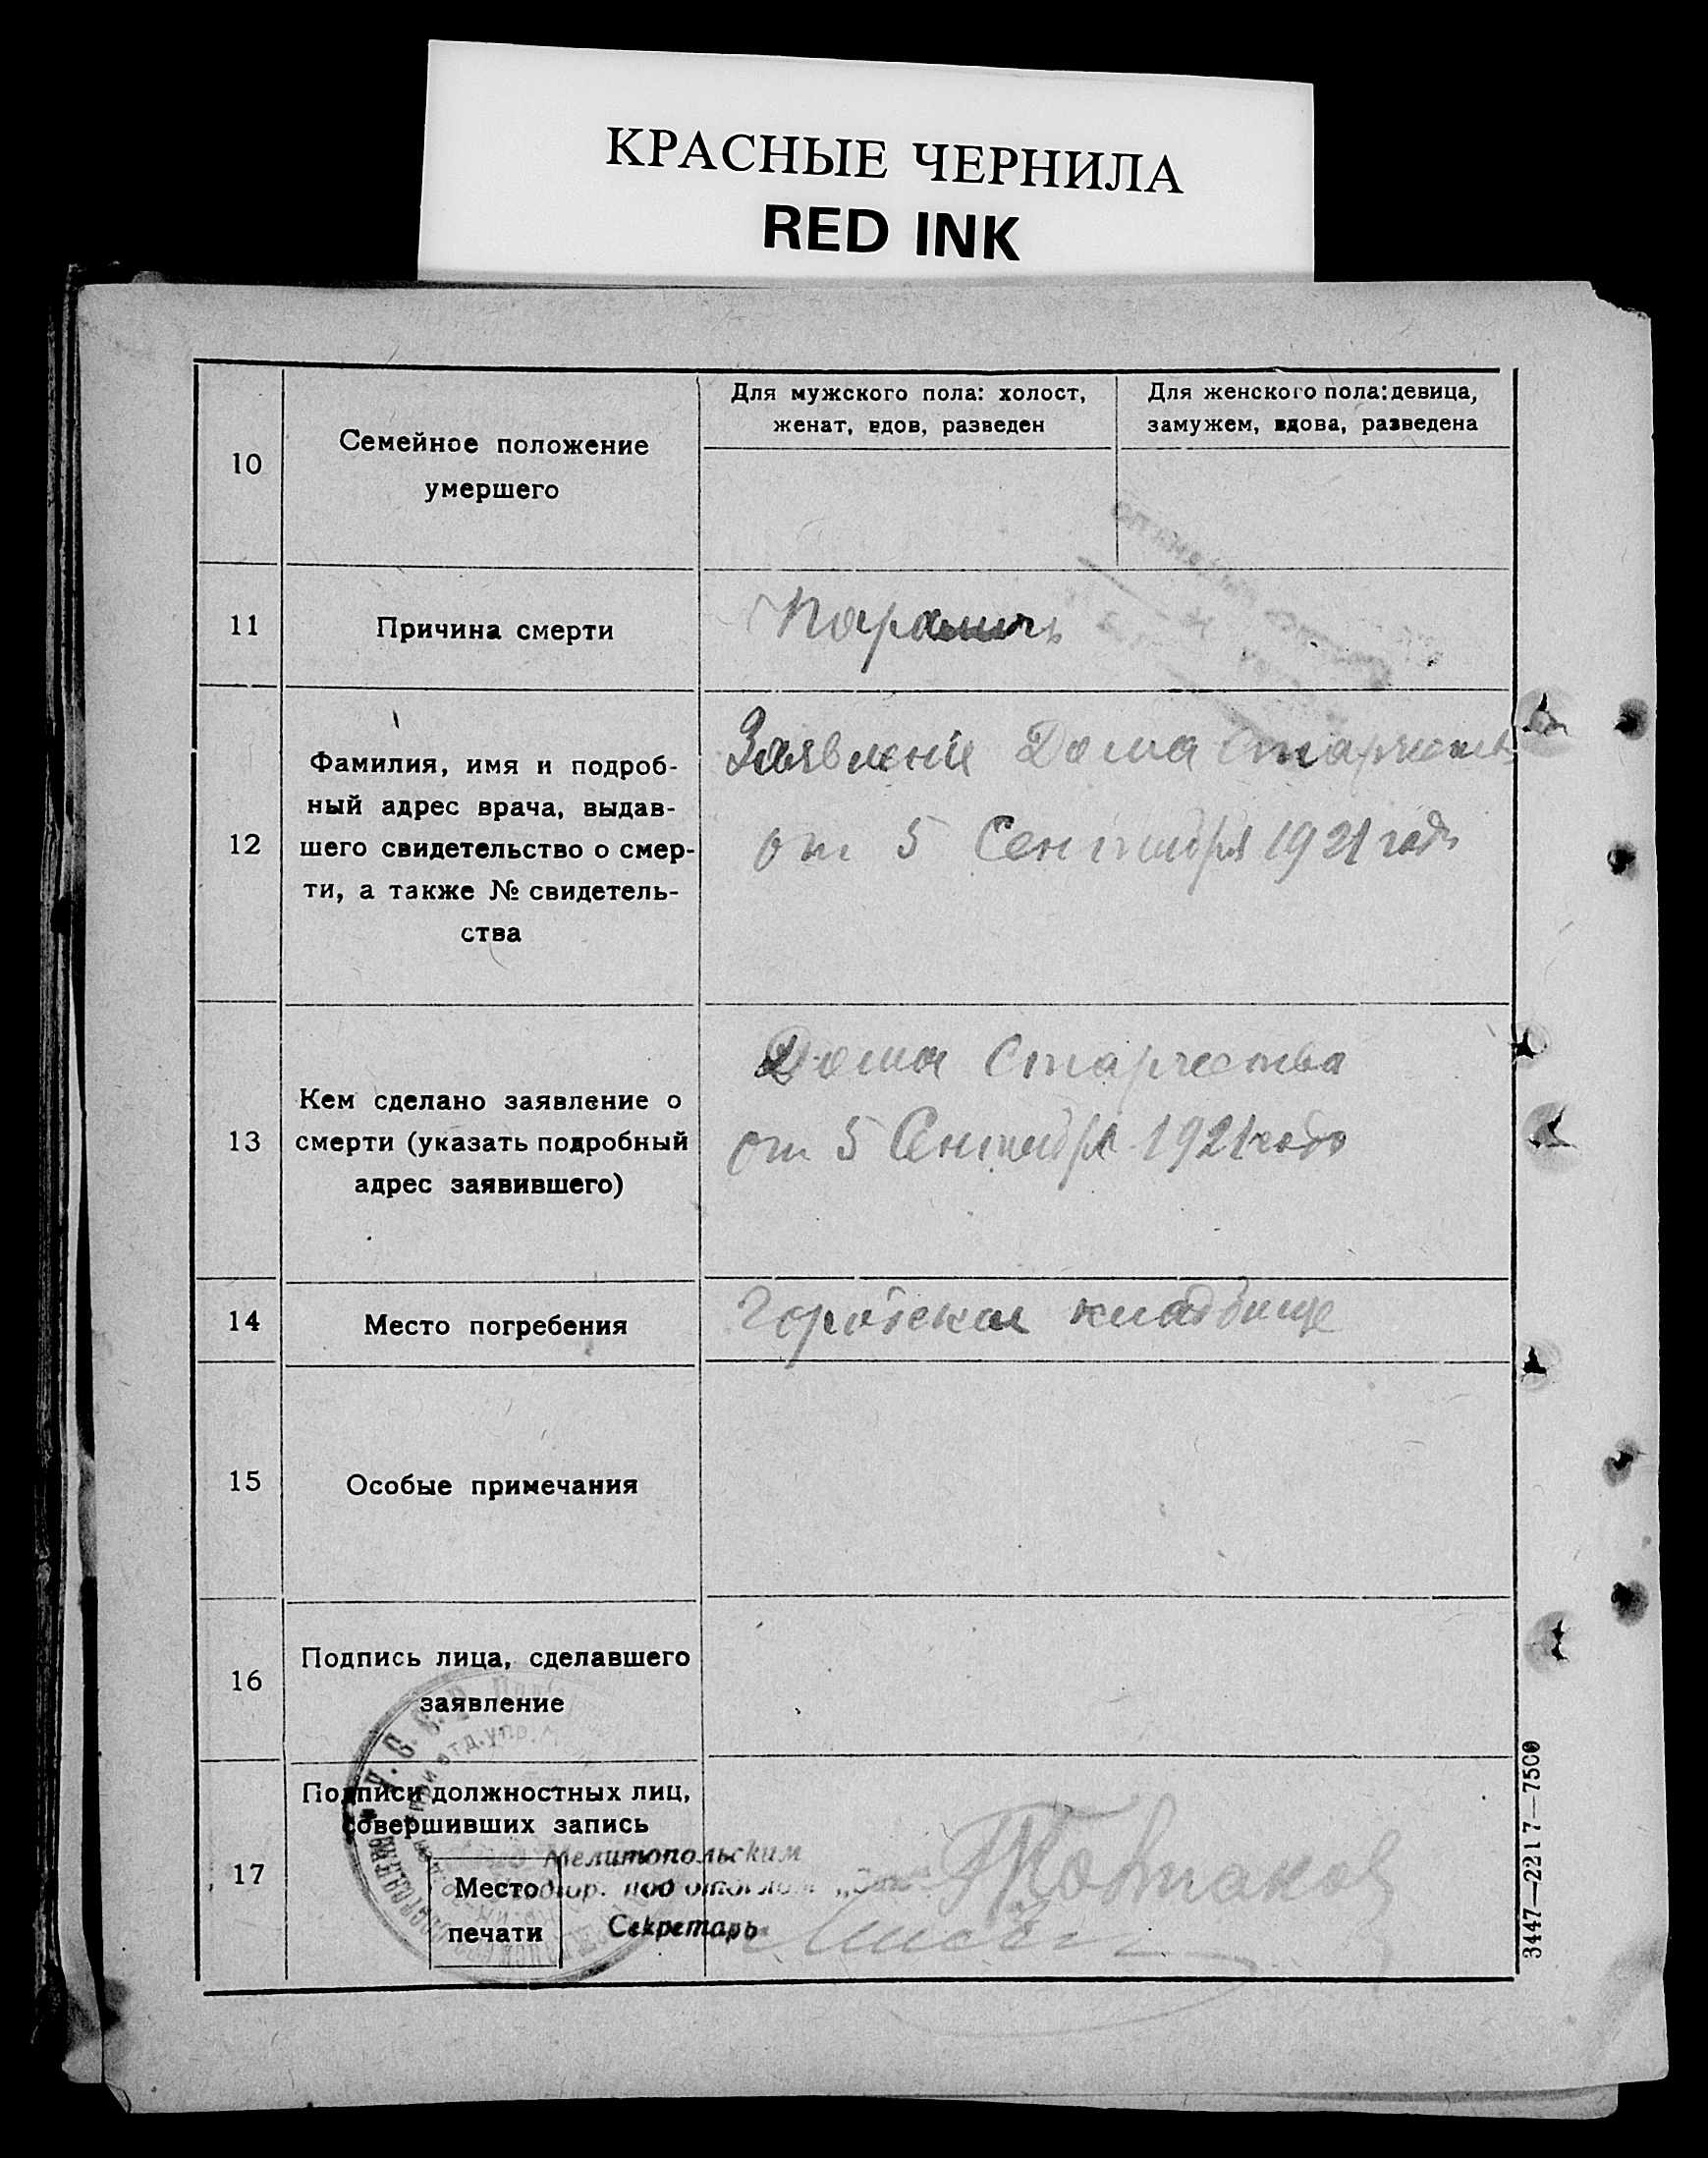 КРАСНЫЕ ЧЕРНИЛА
RED INK
10
Семейное положение
умершего
Для мужского пола: холост,
женат, вдов, разведен
Для женского пола: девица,
замужем, вдова, разведена
11
Причина смерти
Параличъ
12
Фамилия, имя и подроб-
ный адрес врача, выдав-
шего свидетельство о смер-
ти, а также № свидетель-
ства
Заявленія Дома Старчества
от 5 Сентября 1921 года
13
Кем сделано заявление о
смерти (указать подробный
адрес заявившего)
Дома Старчества
от 5 Сентября 1921 года
14
Место погребения
Городская кладбище
15
Особые примечания
16
Подпись лица, сделавшего
заявление
17
Подписи должностных лиц,
совершивших запись
Место
печати
У. С. С. Р.
отд. упр.
Мелитопольским
под
Секретарь
3447—2217—7500